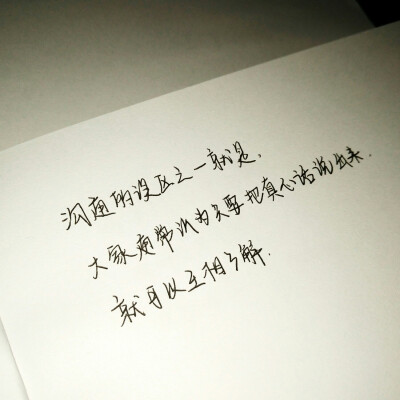 沟通的误区之一就是,
大家通常认为只要把真心话说出来,
就可以互相了解.